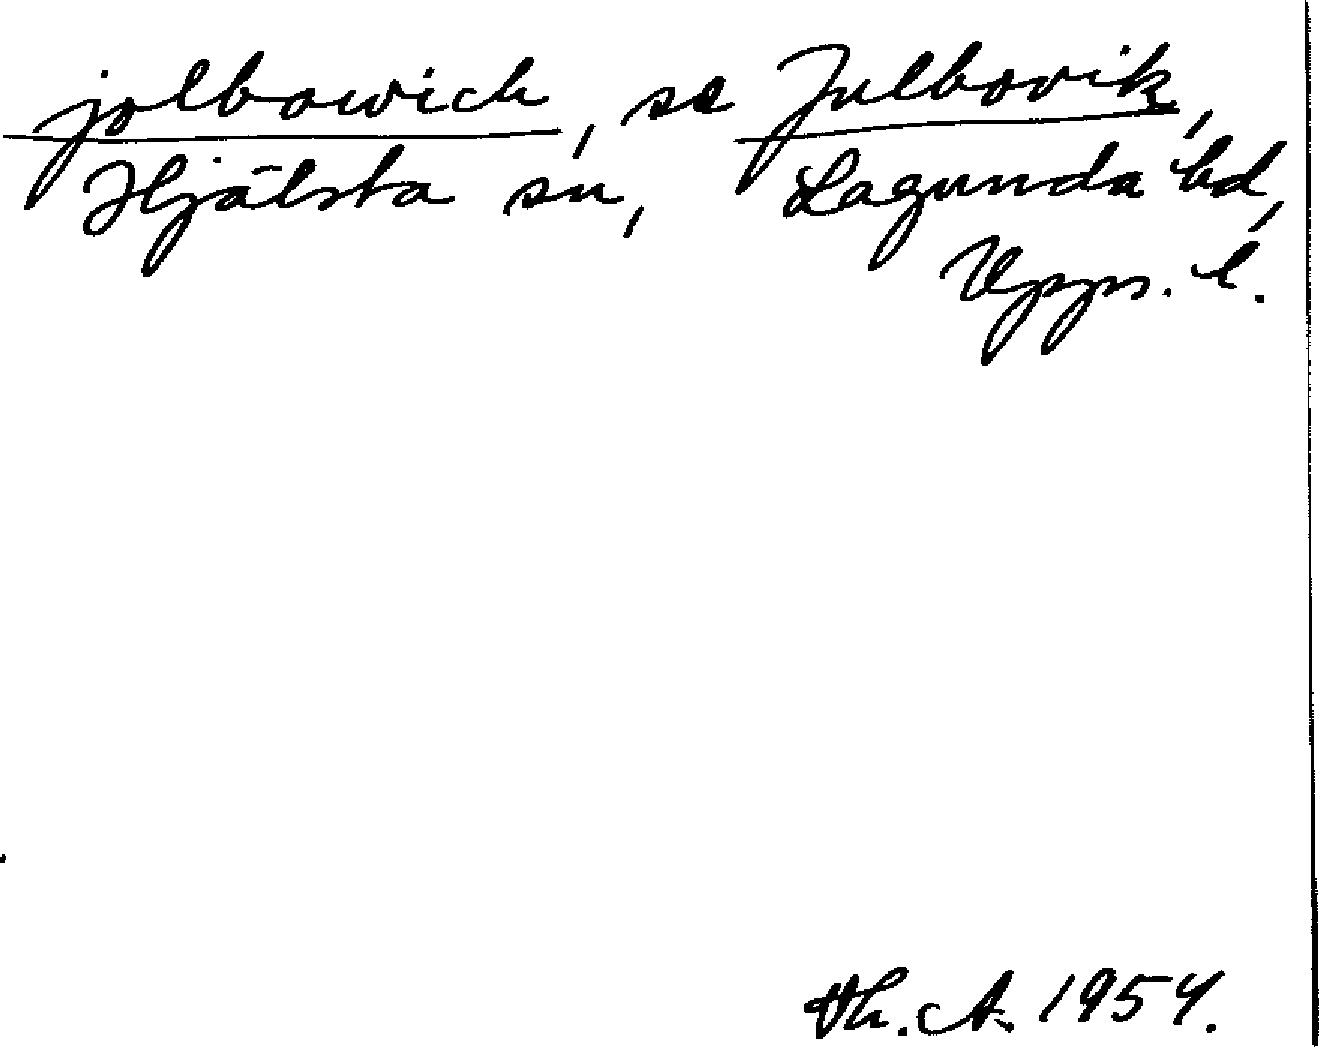 jolbowich, se Julbovik,
Hjälsta sn, Lagunda hd,
Upps. l.
Th. A. 1954.